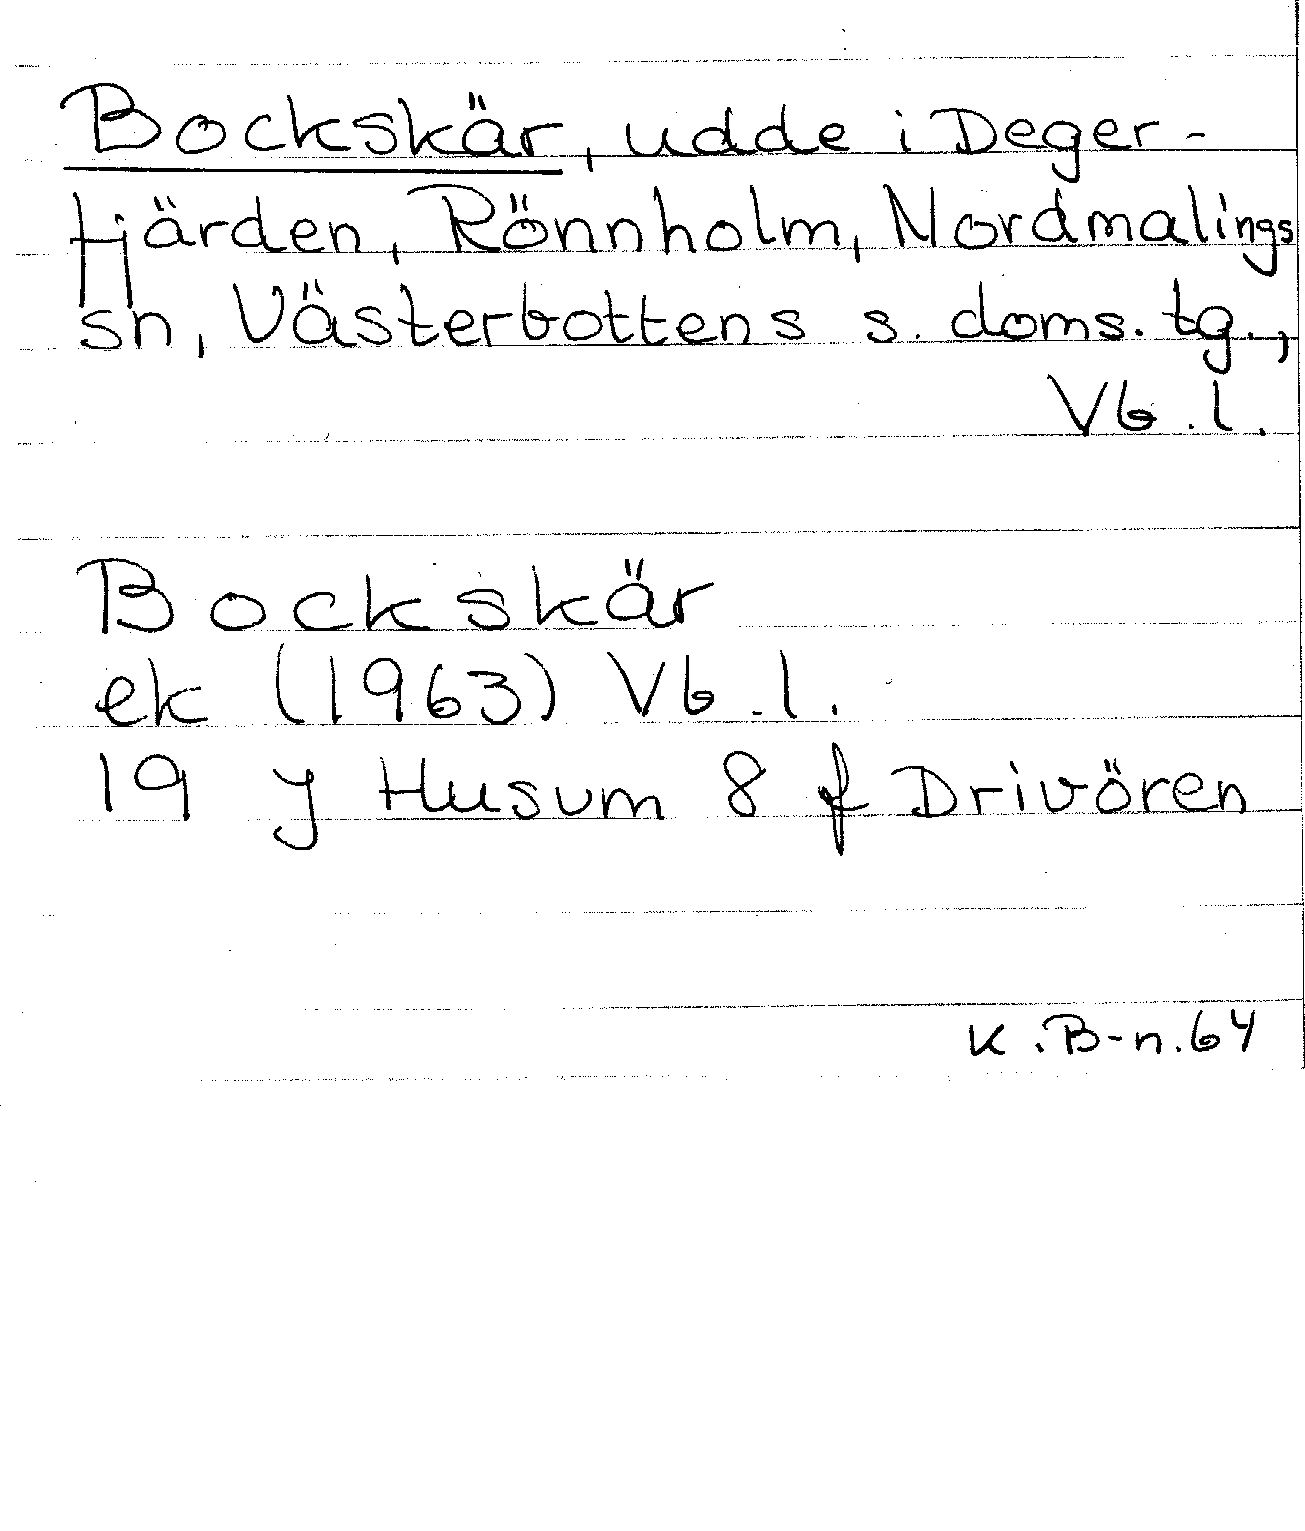 Bockskär, udde i Deger-
fjärden, Rönnholm, Nordmalings
sn, Västerbottens s. doms. tg.,
Vb. l.
Bockskär
ek (1963) Vb. l.
19 J Husum 8 f Drivören
K. B-n. 64